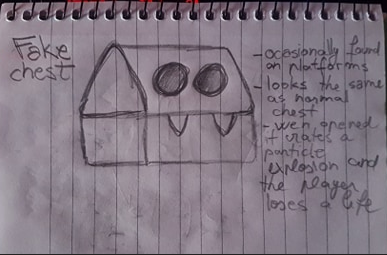 Fake
chest
- ocasionally found
on platforms
- looks the same
as normal
chest
- wen opened
it crates a
particle
explosion and
the player
loses a life